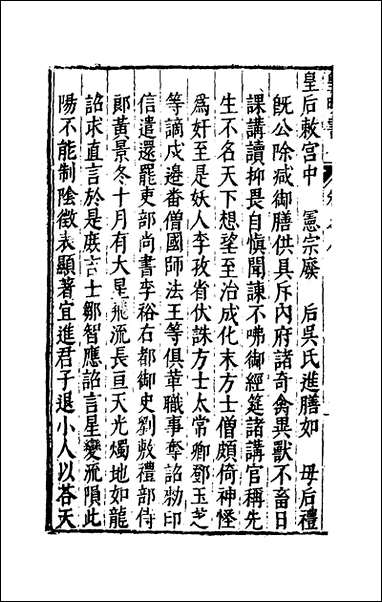 皇后敕宮中　憲宗廢　后吳氏進膳如　母后禮
既公除减御膳供具斥内府諸奇禽異獸不畜日
課講讀抑畏自愼聞諫不咈御經筵諸講官稱先
生不名天下想望至治成化末方士僧頗倚神怪
爲奸至是妖人李孜省伏誅方士太常卿鄧玉芝
等謫戍邊番僧國師法王等俱革職事奪誥勑印
信遣還罷吏部尚書李裕右都御史劉敷禮部侍
郎黃景冬十月有大星飛流長亘天光燭地如龍
詔求直言於是庶吉士鄒智應詔言星變流隕此
陽不能制隂徵表顯著宜進君子退小人以荅天